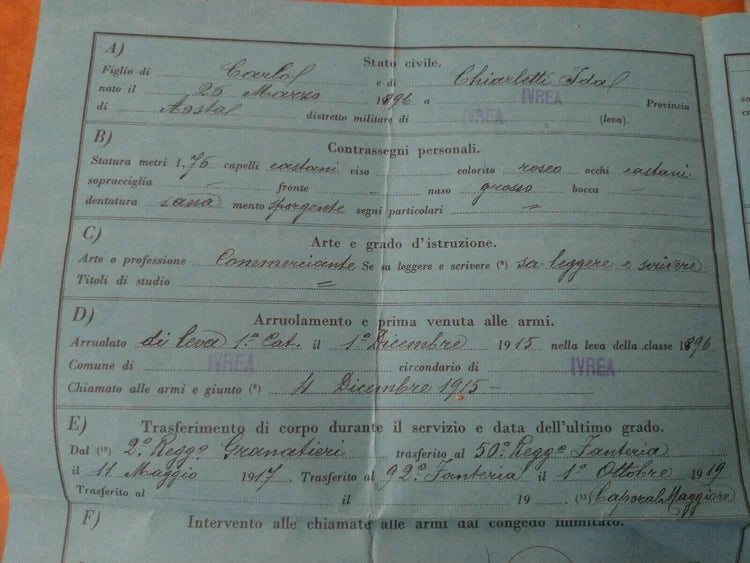 A)
Stato civile.
Figlio di Carlo e di Chiarletti Ida
nato il 26 Marzo 1896 a IVREA Provincia
di Aosta distretto militare di IVREA (leva).
B)
Contrassegni personali.
Statura metri 1,76 capelli castani viso colorito roseo occhi castani
sopracciglia - fronte " naso grosso bocca -
dentatura sana mento sporgente segni particolari "
C)
Arte e grado d'istruzione.
Arte o professione Commerciante Se sa leggere e scrivere (8) sa leggere e scrivere
Titoli di studio =
D)
Arruolamento e prima venuta alle armi.
Arruolato di leva 1ª Cat. il 1º Dicembre 1915 nella leva della classe 1896
Comune di IVREA circondario di IVREA
Chiamato alle armi e giunto (9) 4 Dicembre 1915 -
E)
Trasferimento di corpo durante il servizio e data dell'ultimo grado.
Dal (10) 2º Reggº Granatieri trasferito al 50º Reggº Fanteria
il 11 Maggio 1917. Trasferito al 92º Fanteria il 1º Ottobre 1919
Trasferito al il 19 . (11) Caporal Maggiore
F)
Intervento alle chiamate alle armi dal congedo illimitato.